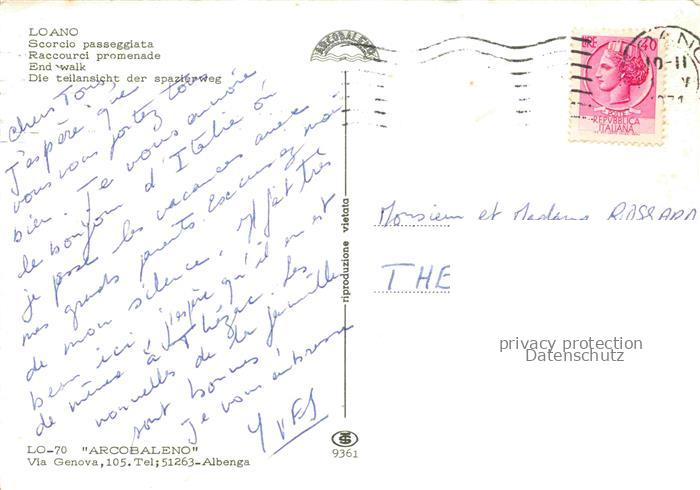 LOANO
Scorcio passeggiata
Raccourci promenade
End walk
Die teilansicht der spazierweg
ARCOBALENO
LIRE 40
POSTE
REPVBBLICA
ITALIANA
Chers Tous
J'espère que
vous vous portez tous
bien. Je vous envoie
le bonjour d'Italie où
je passe les vacances avec
mes grands parents. Excusez moi
de mon silence. Il fait très
beau ici, j'espère qu'il en est
de même à Thézac. Les
nouvelles de la famille
sont bonnes
Je vous embrasse
YVES
riproduzione vietata
Monsieur et Madame
THE
privacy protection
Datenschutz
LO-70 "ARCOBALENO"
Via Genova,105.Tel;51263-Albenga
9361